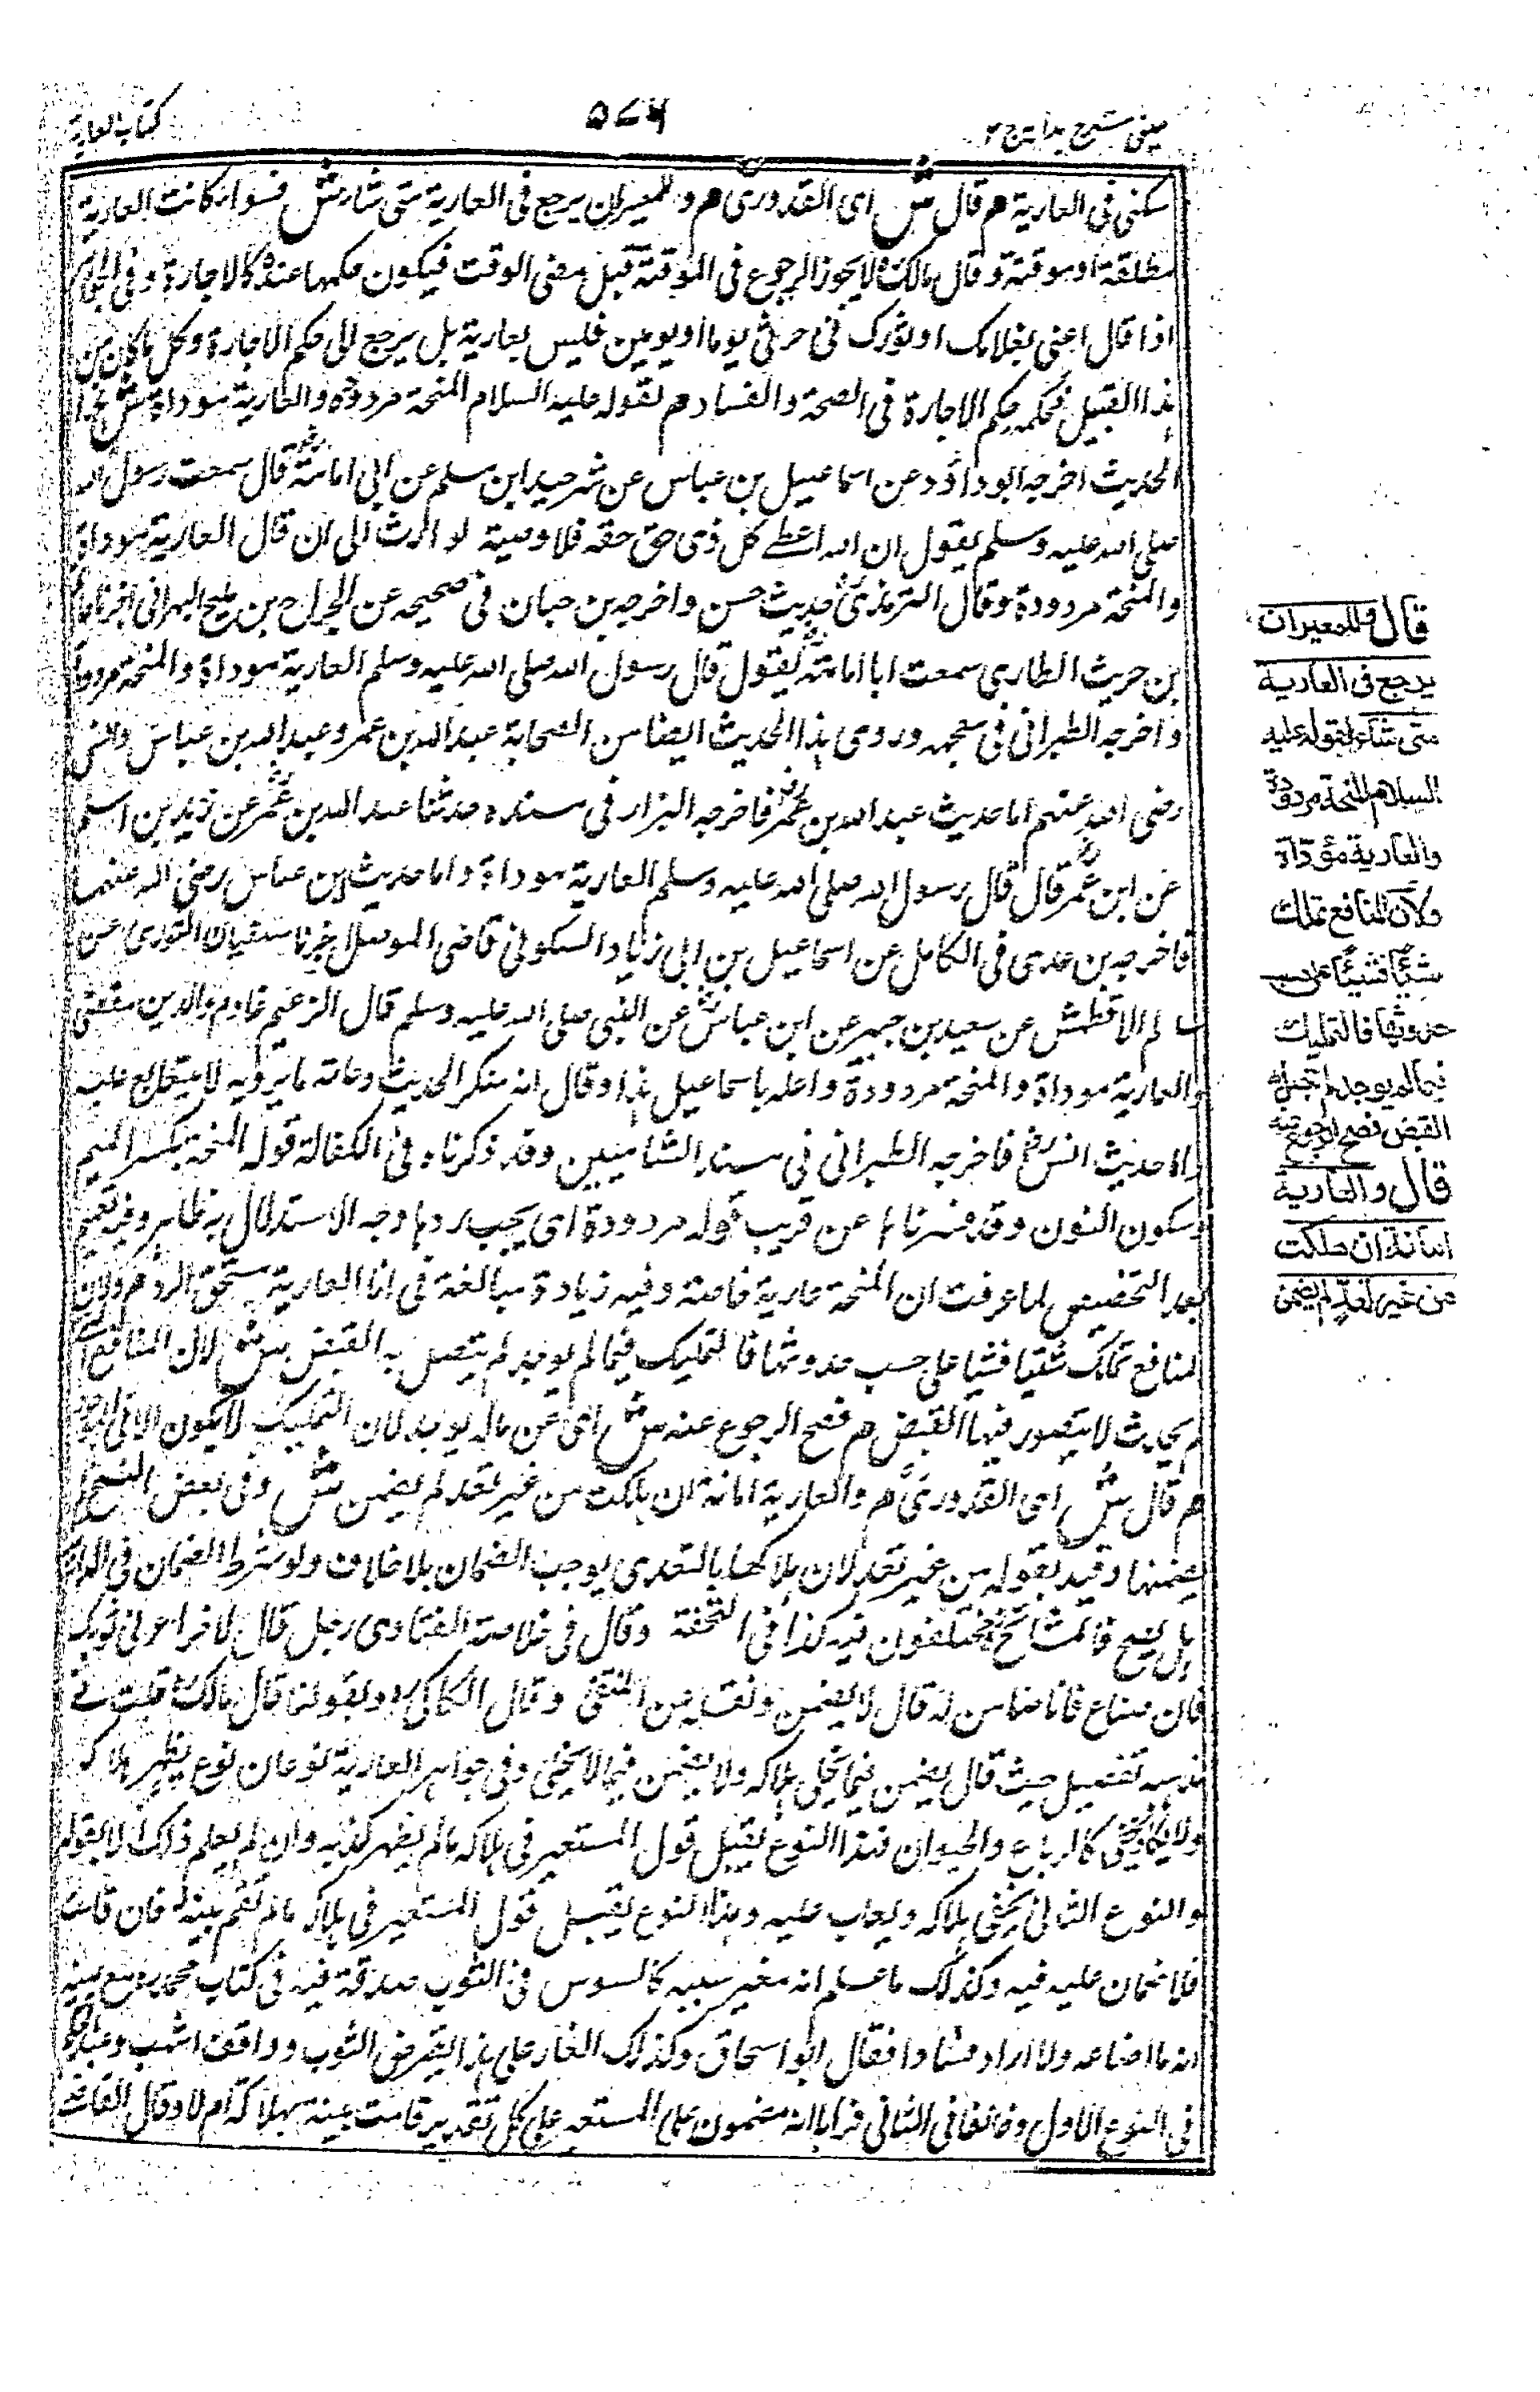 عینی شرح ہدایہ ج ۳
۵۷۶
کتاب العاریة
سکنی فی العاریة م قال ش ای القدوری م وللمعیران یرجع فی العاریة متی شاء ش فسواء کانت العاریة
مطلقة او موقتة وقال مالک لا یجوز الرجوع فی الموقتة قبل مضی الوقت فیکون حکمها عنده کالاجارة وفی
اذا قال اعنی بغلامک او بثورک فی حرثی یوما او یومین فلیس بعاریة بل یرجع الی حکم الاجارة وکل ما کان من
هذا القبیل فحکمه حکم الاجارة فی الصحة والفساد م لقوله علیه السلام المنحة مردودة والعاریة موداة ش هذا
الحدیث اخرجه ابو داؤد عن اسماعیل بن عیاش عن شرحبیل ابن مسلم عن ابی امامة قال سمعت رسول الله
صلی الله علیه وسلم یقول ان الله اعطے کل ذی حق حقه فلا وصیة لوارث الی ان قال العاریة موداة
والمنحة مردودة وقال الترمذی حدیث حسن واخرجه بن حبان فی صحیحه عن الجراح بن ملیح البهرانی اخبرنا حاتم
بن حریث الطاری سمعت ابا امامة یقول قال رسول الله صلی الله علیه وسلم العاریة موداة والمنحة مردودة
واخرجه الطبرانی فی معجمه وروی هذا الحدیث ایضا من الصحابة عبدالله بن عمر وعبدالله بن عباس وانس
رضی الله عنهم اما حدیث عبدالله بن عمر فاخرجه البزار فی مسنده حدثنا عبدالله بن عمر عن زید بن اسلم
عن ابن عمر قال قال رسول الله صلی الله علیه وسلم العاریة موداة واما حدیث ابن عباس رضی الله عنهما
فاخرجه بن عدی فی الکامل عن اسماعیل بن ابی زیاد السکونی قاضی الموصل اخبرنا سفیان الثوری عن
سالم الافطش عن سعید بن جبیر عن ابن عباس عن النبی صلی الله علیه وسلم قال الزعیم غارم والدین مقضی
والعاریة موداة والمنحة مردودة واعله باسماعیل هذا وقال انه منکر الحدیث وعامة ما یرویه لا یتابع علیه
واما حدیث انس فاخرجه الطبرانی فی مسند الشامیین وقد ذکرناه فی الکفالة قوله المنحة بکسر المیم
وسکون النون وقد فسرناها عن قریب قوله مردودة ای یجب ردها وجه الاستدلال به ظاهر وفیه تعمیم
بعد التخصیص لما عرفت ان المنحة عاریة خاصة وفیه زیادة مبالغة فی ان العاریة یستحق الرد م ولان
المنافع تملک شیئا فشیا علی حسب حدوثها فالتملیک فیما لم یوجد لم یتصل به القبض ش لان المنافع
لم یحدث لا یتصور فیها القبض م فصح الرجوع عنه ش ای عن ما لم یوجد لان التملیک لا یکون الا فی
م قال ش ای القدوری م والعاریة امانة ان هلکت من غیر تعد لم یضمن ش وفی بعض النسخ لم
یضمنها وقید بقوله من غیر تعد لان هلاکها بالتعدی یوجب الضمان بلا خلاف ولو شرط الضمان فی
هل یصح فالمشائخ مختلفون فیه کذا فی التحفة وقال فی خلاصة الفتاوی رجل قال لاخر اعرنی ثوبک
فان ضاع فانا ضامن له قال لا یضمن ونقله عن المنتقی وقال الکاکی وبقولنا قال مالک قلت فی
مذهبه تفصیل حیث قال یضمن فیما یخفی هلاکه ولا یضمن فیما لا یخفی وفی جواهر العاریة نوعان نوع یظهر هلاکه
ولا یکاد یخفی کالرباع والحیوان فهذا النوع یقبل قول المستعیر فی هلاکه ما لم یظهر کذبه وان لم یعلم ذلک الا بقوله
والنوع الثانی یخفی هلاکه ویعاب علیه وهذا النوع یقبل قول المستعیر فی هلاکه ما لم تقم بینة فان قامت
فلا ضمان علیه فیه وکذلک ما علم انه مغیر سببه کالسوس فی الثوب صدقة فیه فی کتاب محمد مع یمینه
انه ما اضاعه ولا اراد فسادا فقال ابو اسحاق وکذلک الفار علی هذا یقرض الثوب ووافق اشهب
فی النوع الاول وخالفا فی الثانی فرایا انه مضمون علی المستعیر علی کل تقدیر قامت بینة بهلاکه ام لا وقال
قال وللمعیر ان
یرجع فی العاریة
متی شاء لقوله علیه
السلام المنحة مردودة
والعاریة مؤداة
ولان المنافع تملک
شیئا فشیئا علی حسب
حدوثها فالتملیک
فیما لم یوجد لم یتصل به
القبض فصح الرجوع عنه
قال والعاریة
امانة ان هلکت
من غیر تعد لم یضمن